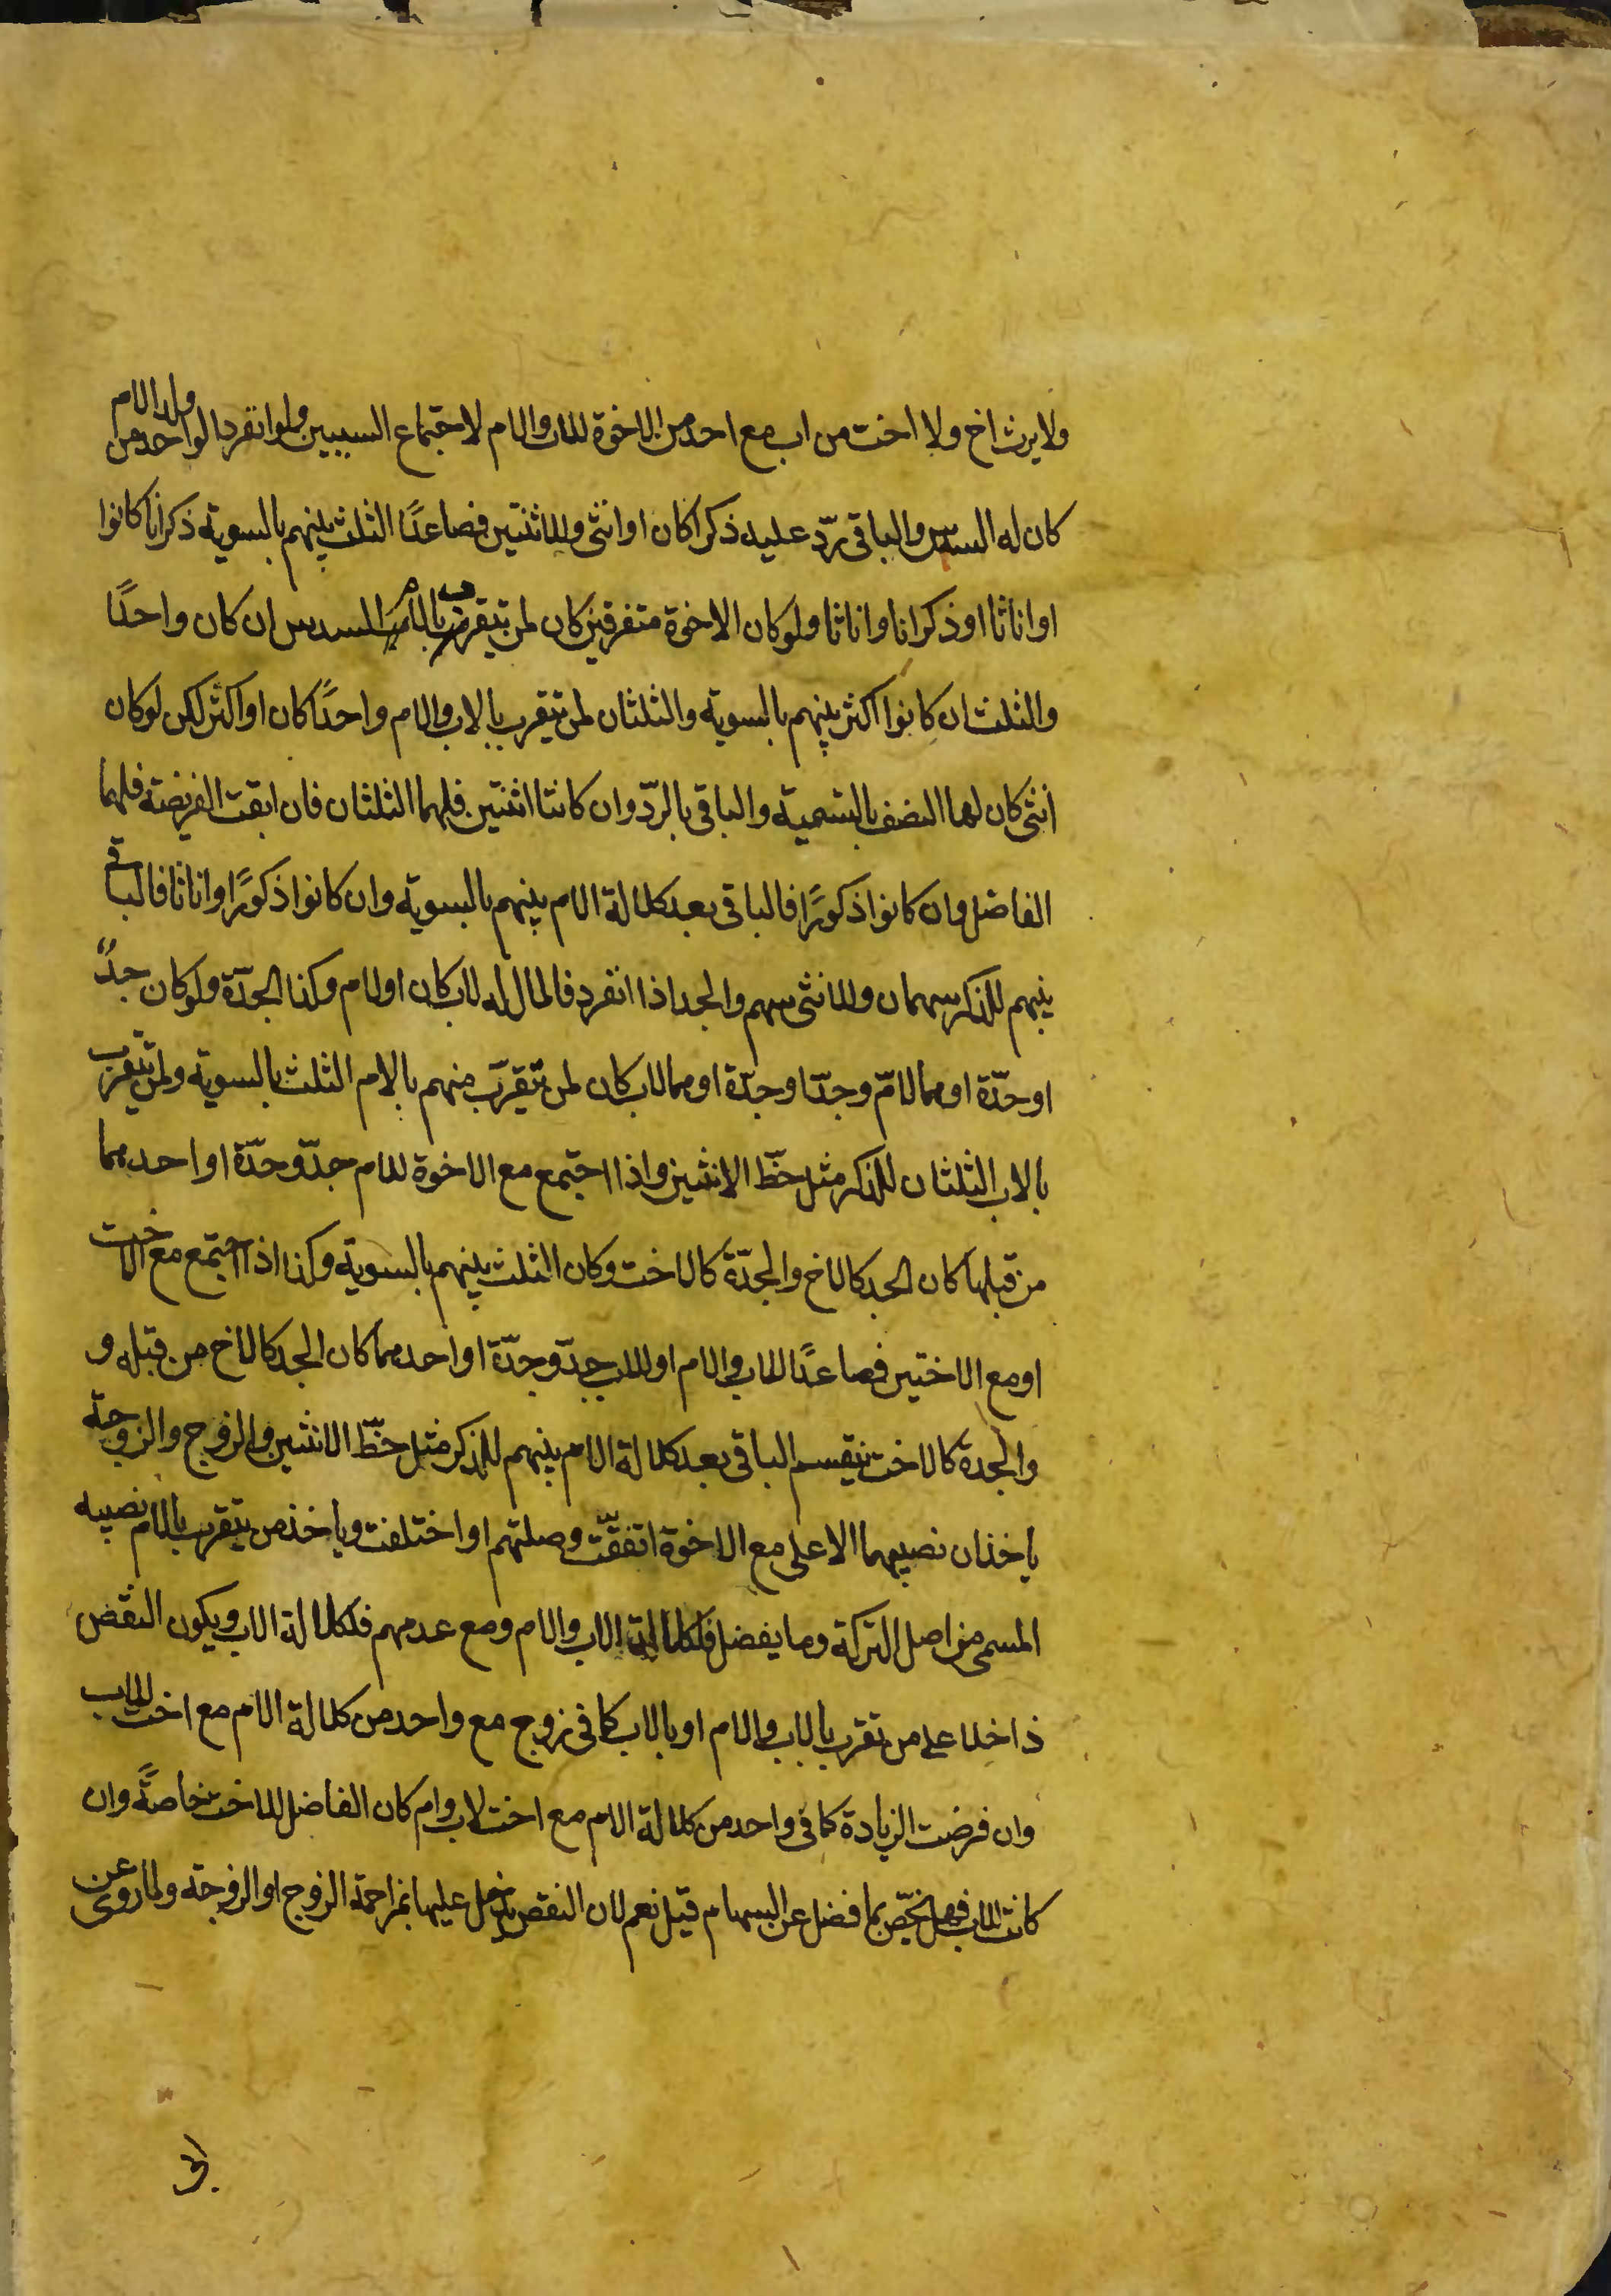 ولا يرث اخ ولا اخت من اب مع احد من الاخوة للاب والام لاجتماع السببين ولو انفرد الواحد من ولد الام
كان له السدس والباقى ردّ عليه ذكرا كان او انثى وللاثنتين فصاعدًا الثلث بينهم بالسوية ذكرانا كانوا
او اناثا او ذكرانا واناثا ولو كان الاخوة متفرقين كان لمن يتقرب بالام السدس ان كان واحدًا
والثلث ان كانوا اكثر بينهم بالسوية والثلثان لمن يتقرب بالاب والام واحدًا كان او اكثر لكن لو كان
انثى كان لها النصف بالتسمية والباقى بالردّ وان كانتا اثنتين فلهما الثلثان فان ابقت الفريضة فلهما
الفاضل وان كانوا ذكورًا فالباقى بعد كلالة الام بينهم بالسوية وان كانوا ذكورًا واناثا فالباقى
بينهم للذكر سهمان وللانثى سهم والجد اذا انفرد فالمال له لاب كان او لام وكذا الجدّة ولو كان جدًّ
او جدّة او هما لامّ وجدّا وجدّة او هما لاب كان لمن يتقرّب منهم بالام الثلث بالسوية ولمن يتقرب
بالاب الثلثان للذكر مثل حظّ الانثيين واذا اجتمع مع الاخوة للام جدّ وجدّة او احدهما
من قبلها كان الجد كالاخ والجدّة كالاخت وكان الثلث بينهم بالسوية وكذا اذا اجتمع مع الاخت
او مع الاختين فصاعدًا للاب والام او للاب جدّ وجدّة او احدهما كان الجد كالاخ من قبله و
والجدة كالاخت ينقسم الباقى بعد كلالة الام بينهم للذكر مثل حظّ الانثيين والزوج والزوجة
ياخذان نصيبهما الاعلى مع الاخوة اتفقّت وصلتهم او اختلفت وياخذ من يتقرب بالام نصيبه
المسمى من اصل التركة وما يفضل فلكلالة الاب والام ومع عدمهم فلكلالة الاب ويكون النقض
داخلا على من تقرب بالاب والام او بالاب كما فى زوج مع واحد من كلالة الام مع اخت للاب
وان فرضت الزيادة كما فى واحد من كلالة الام مع اخت لاب وام كان الفاضل للاخت خاصةً وان
كانت للاب فهل تخصّ بما فضل عن السهام قيل نعم لان النقص يدخل عليها بمزاحمة الزوج او الزوجة ولما روى عن